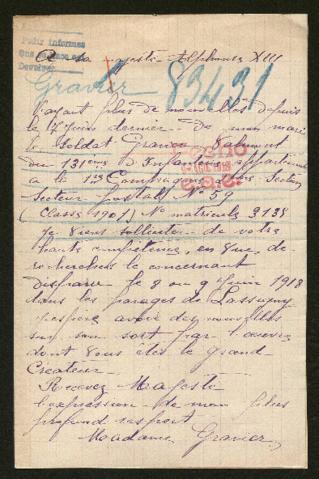 Pedir informes
Devolver
A sa Majesté Alphonse XIII
Gravier 83431
N'ayant plus de nouvelles depuis
le 7 juin dernier de mon mari
le Soldat Gravier
du 131ème d'Infanterie
à la Compagnie Secteur
Secteur Postal N° 59
(Classe 1901) N° matricule 3138
Je viens solliciter de votre
haute compétence, en vue de
recherches le concernant
disparu le 8 ou 9 Juin 1918
dans les parages de Lassigny
espère avoir des nouvelles
sur son sort par l'œuvre
dont vous êtes le grand
Créateur
Recevez Majesté
l'expression de mon plus
profond respect
Madame Gravier